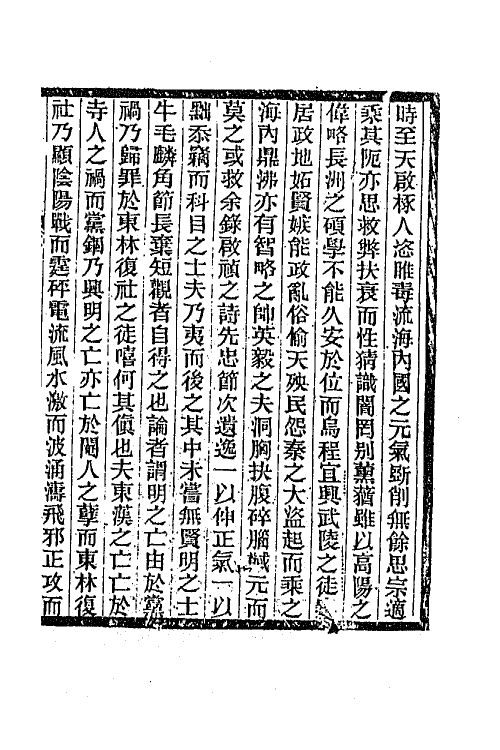 時至天啟椓人恣雎毒流海內國之元氣斵削無餘思宗適
乘其阨亦思救弊扶衰而性猜識闇罔别薰蕕雖以高陽之
偉略長洲之碩學不能久安於位而烏程宜興武陵之徒
居政地妬賢嫉能政亂俗偷天殃民怨秦之大盜起而乘之
海內鼎沸亦有智略之帥英毅之夫洞胸抉腹碎腦馘元而
莫之或救余錄啟禎之詩先忠節次遺逸一以伸正氣一以
黜忝竊而科目之士夫乃夷而後之其中未嘗無賢明之士
牛毛麟角節長棄短觀者自得之也論者謂明之亡由於黨
禍乃歸罪於東林復社之徒嘻何其傎也夫東漢之亡亡於
寺人之禍而黨錮乃興明之亡亦亡於閹人之孽而東林復
社乃顯陰陽戰而霆砰電流風水激而波涌濤飛邪正攻而